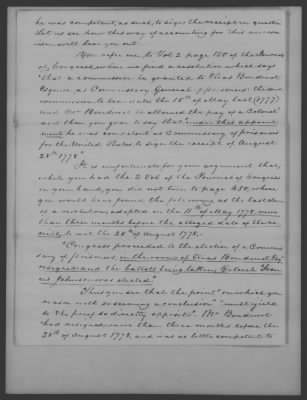 he was competent, as such, to sign the receipt in question
Let us see how this way of accounting for this
will bear you out.
You refer me to Vol 2 page 150 of the Journals
of Congress, where we find a resolution which says
"that a commission be granted to Elias Boudinot
Esquire, as Commissary General of prisoners: that said
commission bear date the 15th of May last (1777)
and Mr Boudinot be allowed the pay of a Colonel"
and then you go on to say that under this appoint
ment he was competent as Commissary of prisoners
for the United States to sign the receipt of August
28th 1778."
It is unfortunate for your argument, that,
when you had the 2 Vol. of the Journals of Congress
in your hand, you did not turn to page 450, where
you would have found the following as the last clause
of a resolution adopted on the 11th of May 1778, more
than three months before the alleged date of the re-
ceipt, to wit the 28th of August 1778.
"Congress proceeded to the election of a Commis
sary of prisoners, in the room of Elias Boudinot Esqr
resigned, and the ballots being taken, Colonel Fran
cis Johnson was elected."
Thus you see that the "point" on which you
reason with so seeming a conclusion "must yield
to the proof so directly opposite". Mr Boudinot
had resigned more than three months before the
28th of August 1778, and was as little competent to